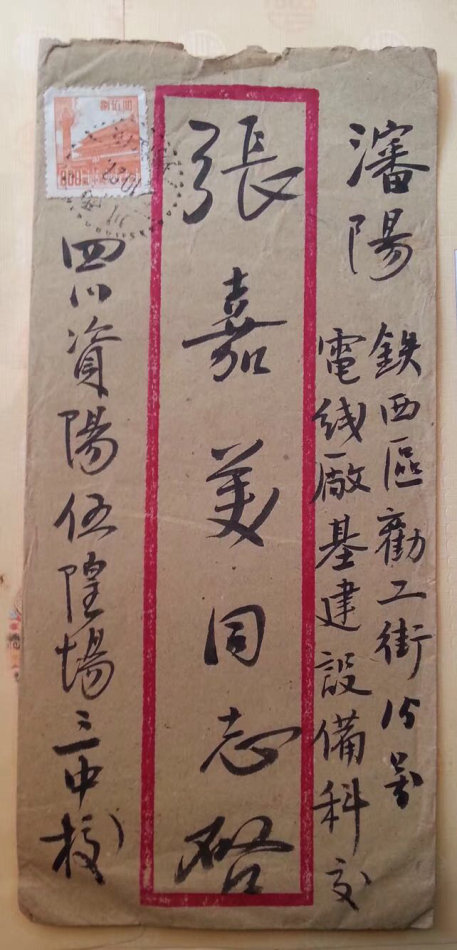 瀋陽
鉄西區勸工街15号
電线厰基建設備科交
張嘉美同志啓
四川資陽伍隍場三中校
捌佰圆
800